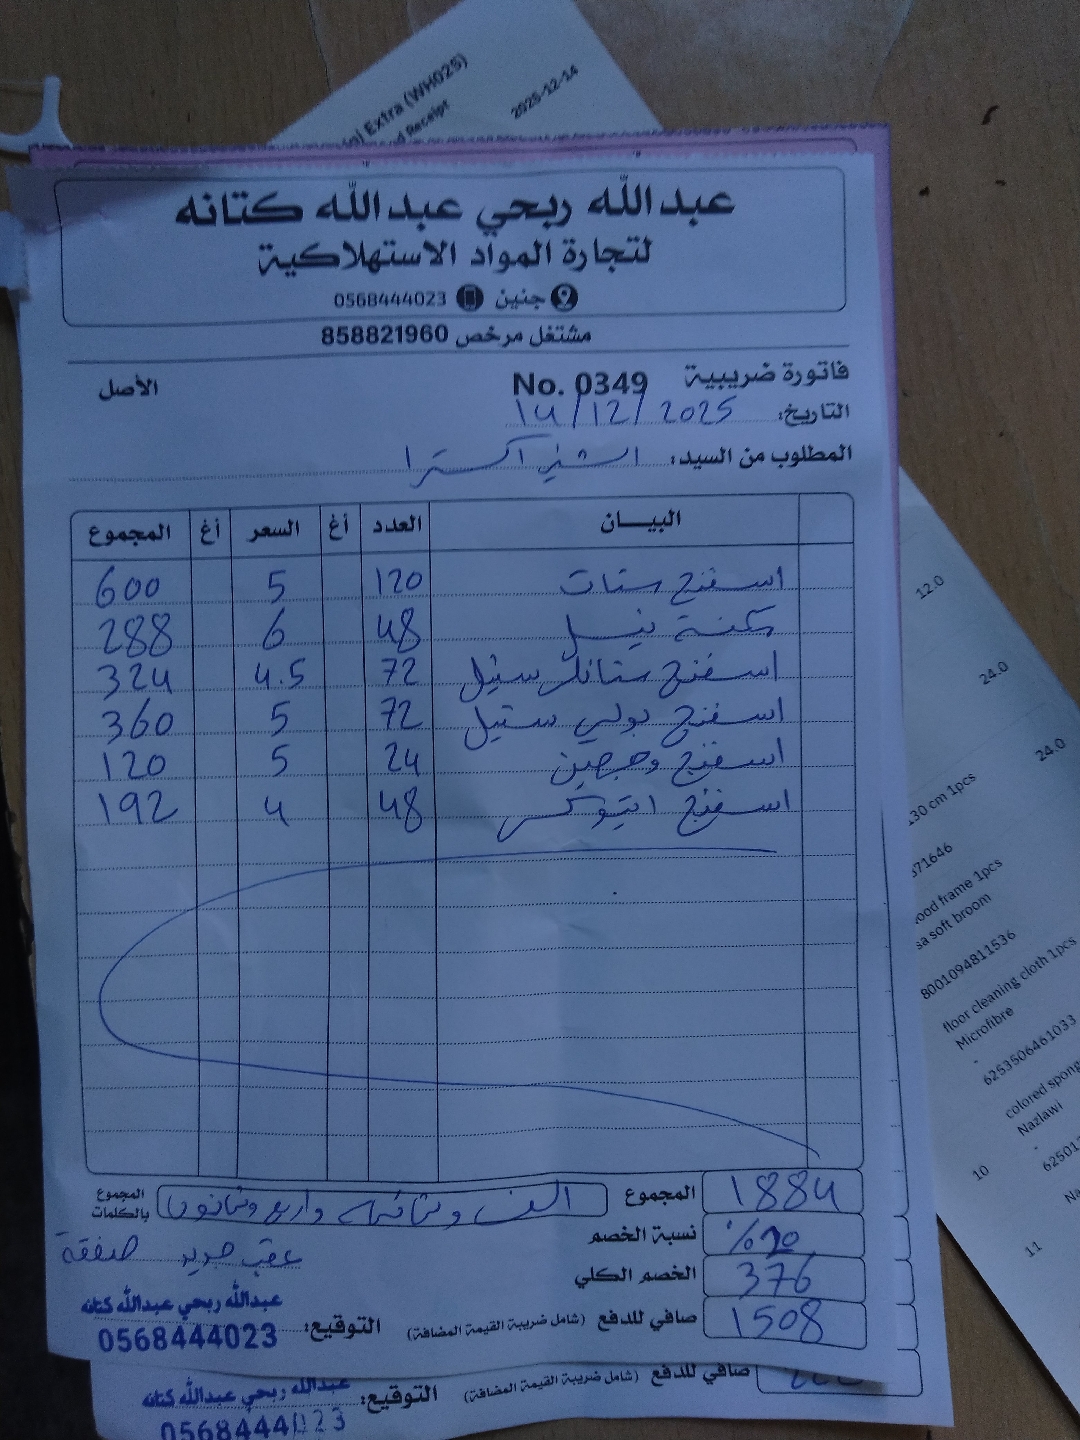 Extra (WH025)
Receipt
2025-12-14
عبدالله ربحي عبدالله كتانه
لتجارة المواد الاستهلاكية
جنين 0568444023
مشتغل مرخص 858821960
فاتورة ضريبية No. 0349 الأصل
التاريخ: 14/12/2025
المطلوب من السيد: الشني اكسترا
البيــــان العدد أغ السعر أغ المجموع
اسفنج ستات 120 5 600
48 6 288
اسفنج ستانلس ستيل 72 4.5 324
اسفنج بولي ستيل 72 5 360
اسفنج وجهين 24 5 120
اسفنج 48 4 192
المجموع 1884
المجموع بالكلمات الف وثمانمائه واربع وثمانون
نسبة الخصم %20
الخصم الكلي 376
صافي للدفع (شامل ضريبة القيمة المضافة) 1508
صفقة
التوقيع: عبدالله ربحي عبدالله كتانه
0568444023
صافي للدفع (شامل ضريبة القيمة المضافة)
التوقيع: عبدالله ربحي عبدالله كتانه
0568444023
12.0
24.0
24.0
130 cm 1pcs
371646
wood frame 1pcs
sa soft broom
8001094811536
floor cleaning cloth 1pcs
Microfibre
-
6253506461033
colored spong
Nazlawi
-
10
62501
Na
11